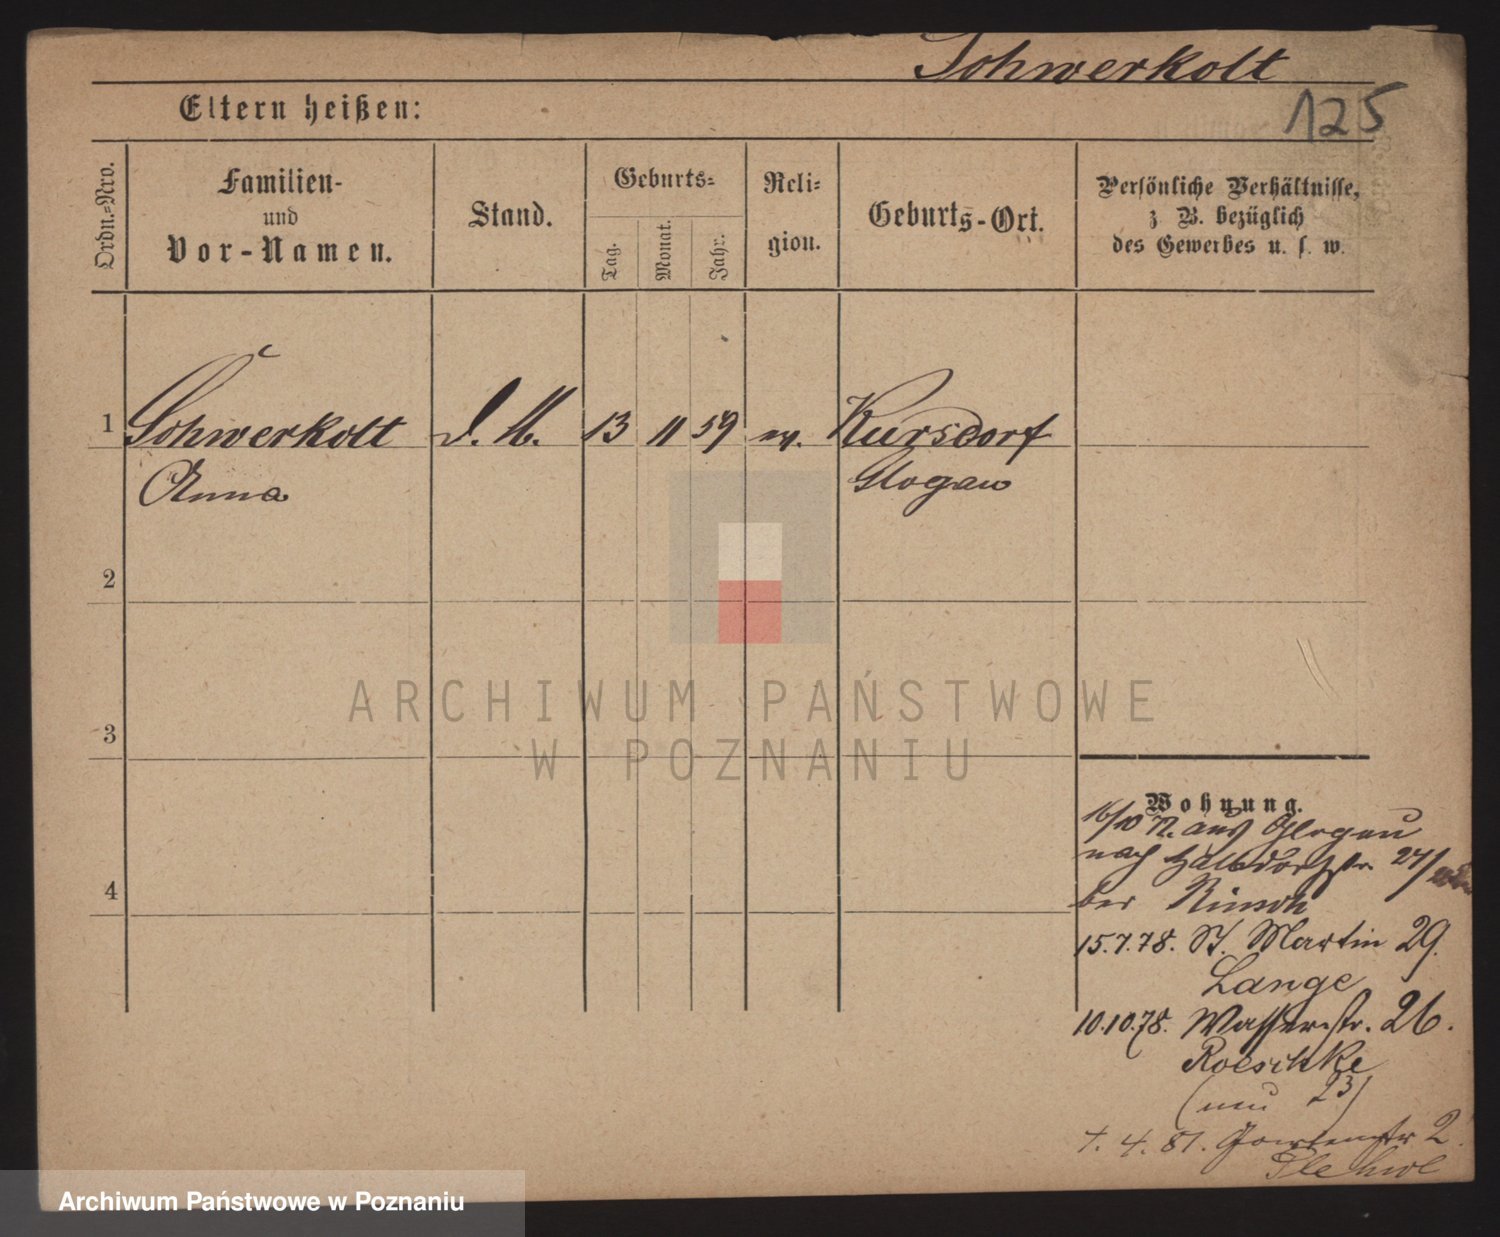 Schwerkolt
125
Eltern heißen:
Ordn.-Nro.
Familien-
und
Vor-Namen.
Stand.
Geburts-
Tag.
Monat.
Jahr.
Reli-
gion.
Geburts-Ort.
Persönliche Verhältnisse,
z. B. bezüglich
des Gewerbes u. s. w.
1 Schwerkolt D. M. 13 11 59 ev. Kursdorf
Anna Glogau
2
3
4
ARCHIWUM PAŃSTWOWE
W POZNANIU
Wohnung.
16/10 aus Glogau
nach 24/
bei
15.7.78. St. Martin 29.
Lange
10.10.78. Wasserstr. 26.
Roeschke
(neu 23)
4. 81. Gartenstr 2.
Archiwum Państwowe w Poznaniu